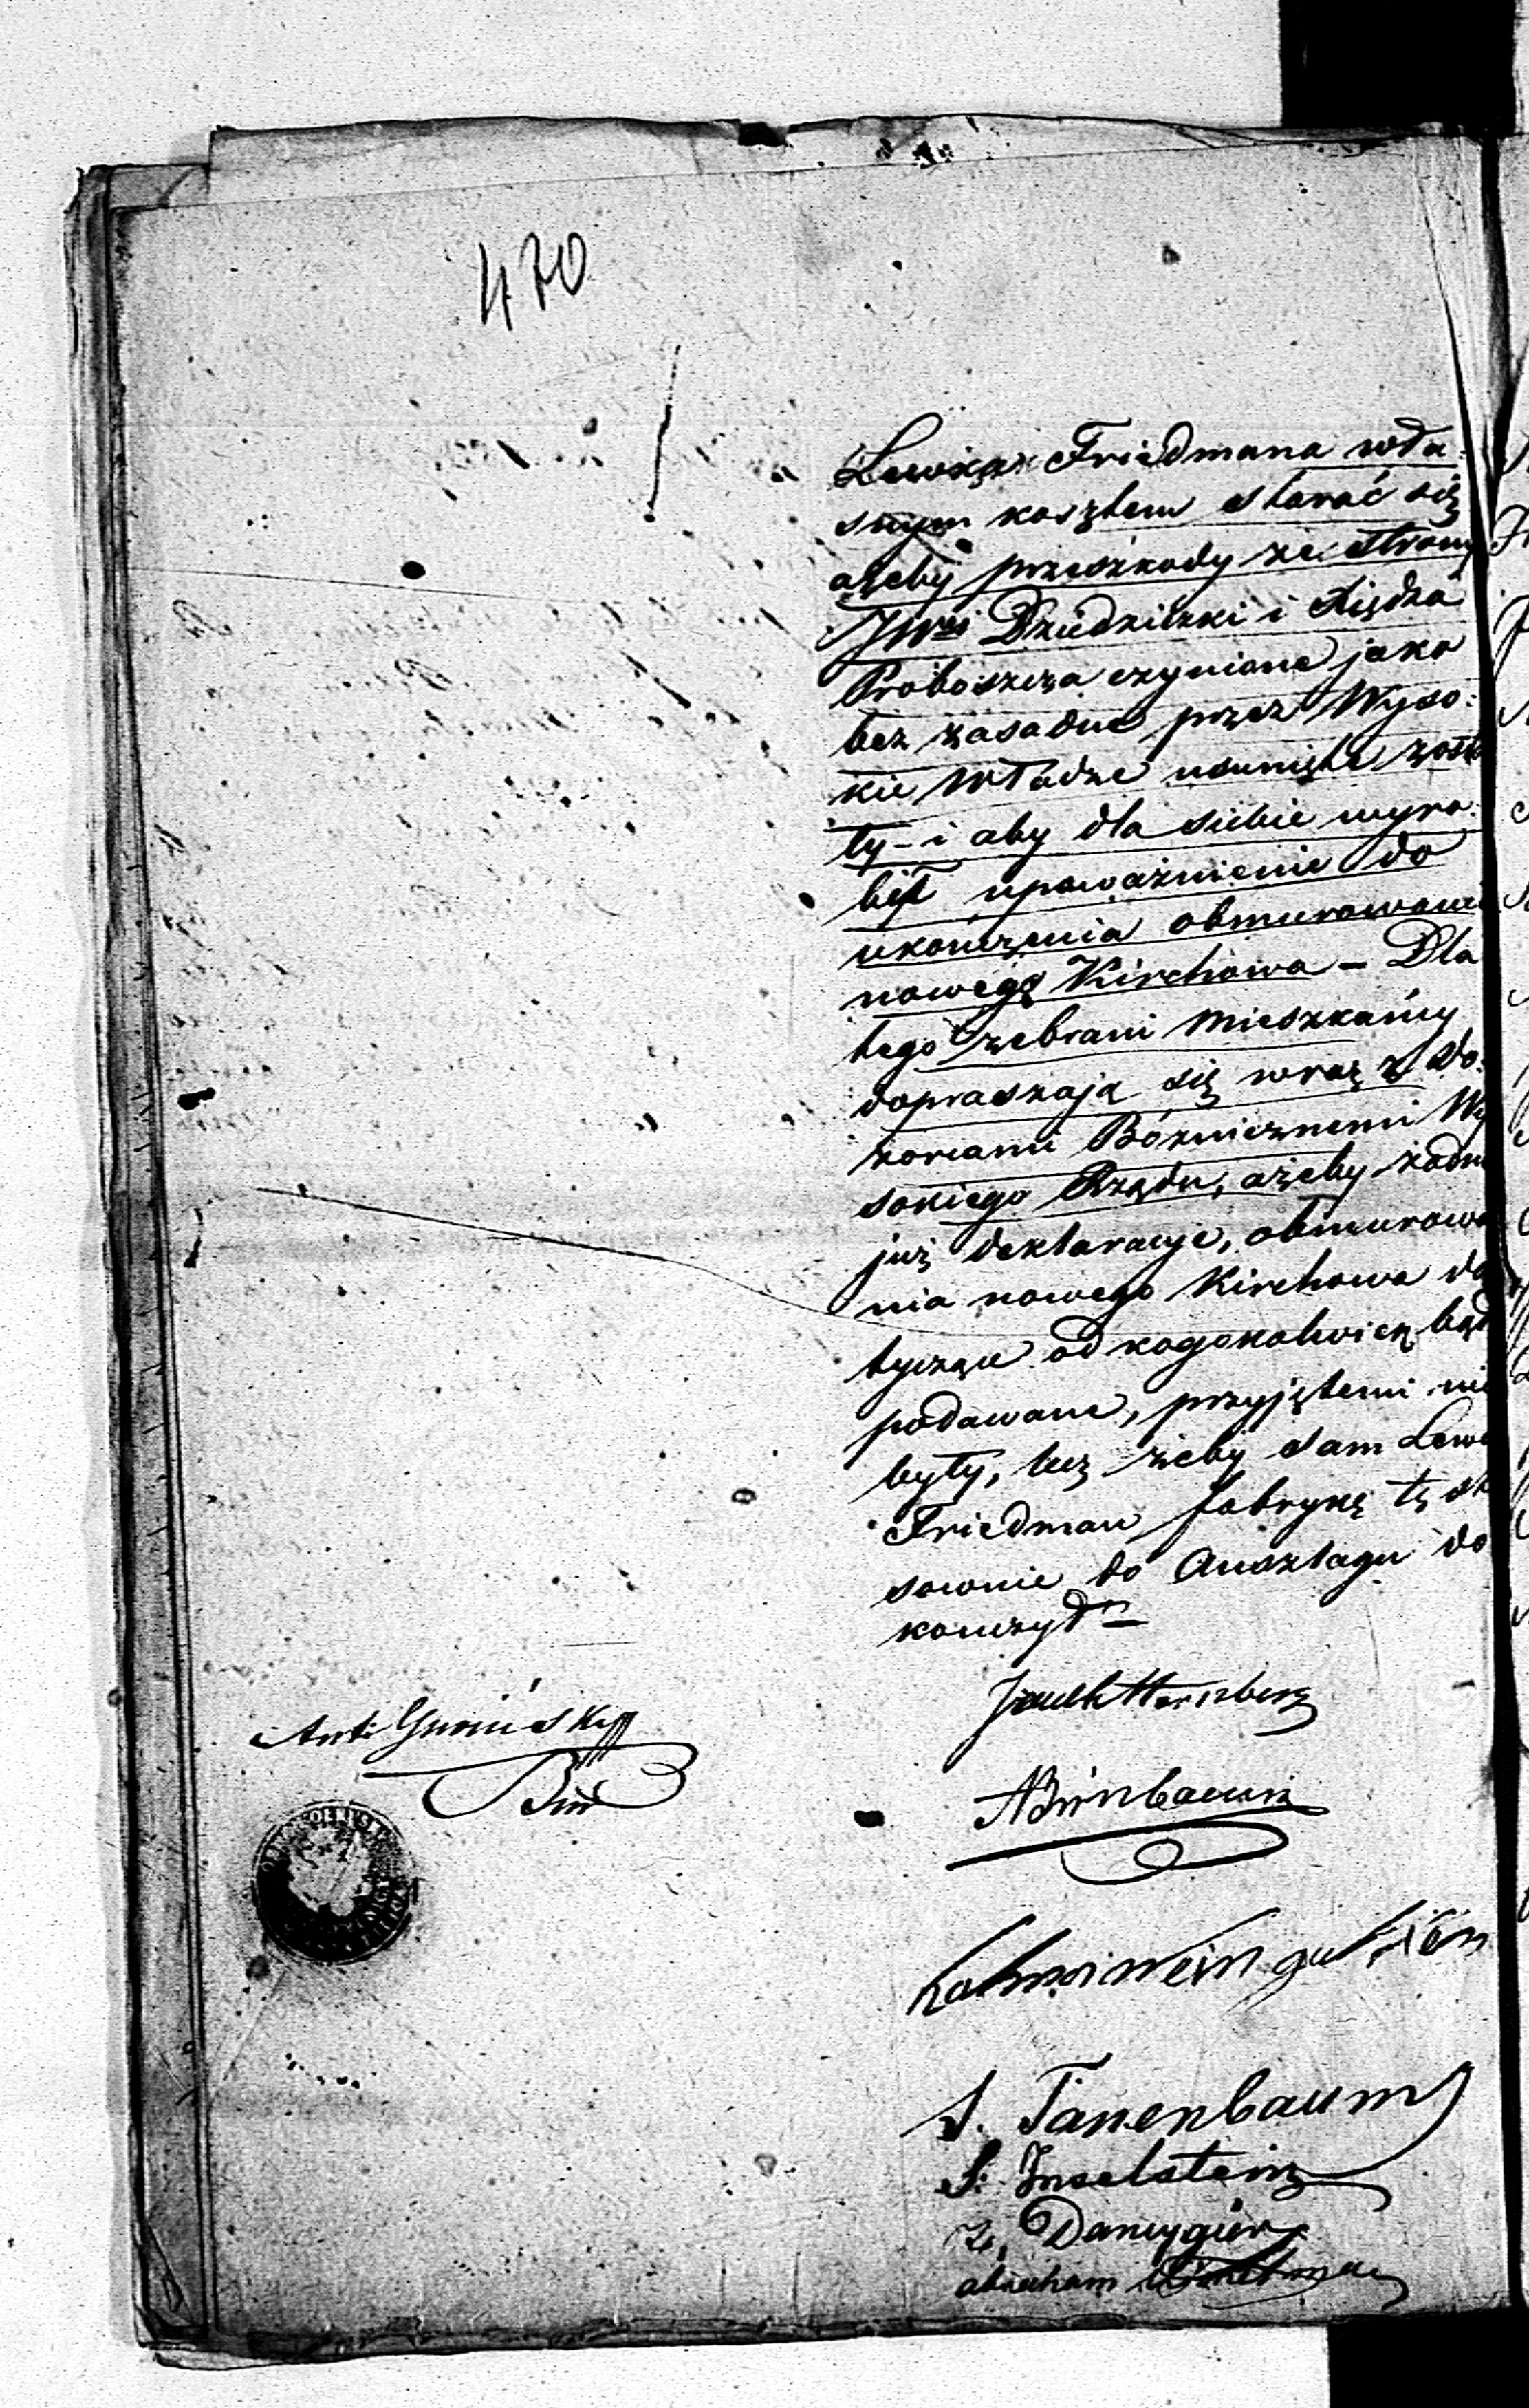 470
Lewka Friedmana wła-
snym kosztem starać się
ażeby przeszkody ze strony
JWej Dziedziczki i Księdza
Proboszcza czynione jako
bez zasadne przez Wyso-
kie Władze usunięte zosta
ły – i aby dla siebie wyro-
bił upoważnienie do
ukończenia obmurowani
nowego Kirchowa – Dla
tego zebrani Mieszkańcy
dopraszają się wraz z Do-
zorcami Bóżnicznemi Wy
sokiego Rządu, ażeby żadne
już deklaracye, obmurowa
nia nowego Kirchowa do
tyczące od kogokolwiek bądź
podawane, przyjętemi nie
były, lecz żeby sam Lewe
Friedman fabrykę tę st
sownie do Anszlagu do
kończył –
Hernberg
ABirnbaum
S. Tanenbaum
S. Inselstein
Z. Dancygier
abraham
Ant.
Bur